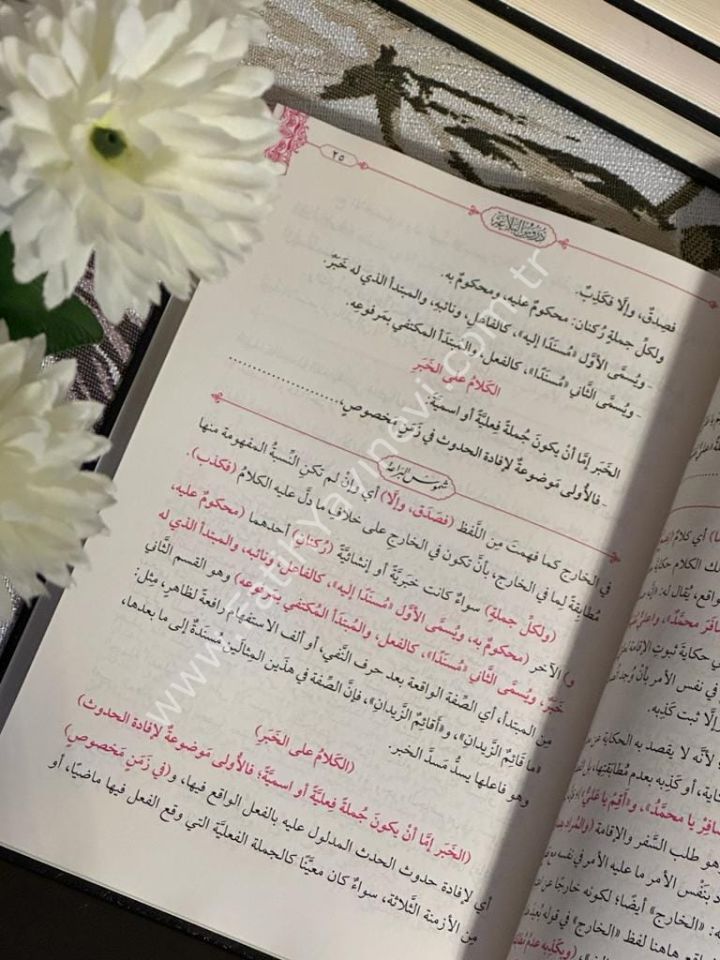 ٢٥
دروس البلاغة
فصدقٌ، وإلّا فكَذِبٌ.
ولكل جملةٍ رُكنان: محكومٌ عليه، ومحكومٌ به.
- ويُسمَّى الأوَّل «مُسنَدًا إليه»، كالفاعل، ونائبه، والمبتدأ الذي له خَبَرٌ.
- ويُسمَّى الثَّاني «مُسنَدًا»، كالفعل، والمُبتَدأ المكتفي بمَرفوعِه.
الكَلامُ على الخَبَر
الخَبَر إمَّا أنْ يكونَ جُملةً فِعليَّةً أو اسميَّةً:
- فالأولى مَوضوعةٌ لإفادة الحدوث في زَمَنٍ مَخصوصٍ،
شموس البراعة
في الخارج كما فهمتَ مِن اللَّفظ (فصَدَق، وإلّا) أي وإنْ لم تكنِ النِّسبةُ المفهومة منها
مُطابِقةً لِما في الخارج، بأنْ تكون في الخارج على خلاف ما دلَّ عليه الكلامُ (فكذب).
(ولكل جملةٍ) سواءٌ كانت خبَريَّةً أو إنشائيَّةً (رُكنانِ) أحدهما (محكومٌ عليه،
و) الآخر (محكومٌ به، ويُسمى الأوَّل «مُسنَدًا إليه»، كالفاعل، ونائبه، والمبتدأ الذي له
خَبَر، ويُسمَّى الثاني «مُسنَدًا»، كالفعل، والمُبتدَأ المُكتفي بمَرفوعه) وهو القسم الثَّاني
مِن المبتدَأ، أي الصِّفة الواقعة بعد حرف النَّفي، أو ألف الاستفهام رافعةً لظاهرٍ، مِثل:
«ما قائِمٌ الزَّيدانِ»، و«أقائِمٌ الزَّيدانِ»، فإنَّ الصِّفة في هذَين المِثالَين مُسنَدةٌ إلى ما بعدها،
وهو فاعلها يسدُّ مَسدَّ الخبر.
(الكَلامُ على الخَبَر)
(الخَبَر إمَّا أنْ يكونَ جُملةً فِعليَّةً أو اسميَّةً؛ فالأولى مَوضوعةٌ لإفادة الحدوث)
أي لإفادة حدوث الحدث المدلول عليه بالفعل الواقع فيها، و(في زَمَنٍ مَخصوصٍ)
مِن الأزمنة الثَّلاثة، سواءٌ كان معيَّنًا كالجملة الفعليَّة التي وقع الفعل فيها ماضيًا، أو
www.FatihYayinevi.com.tr